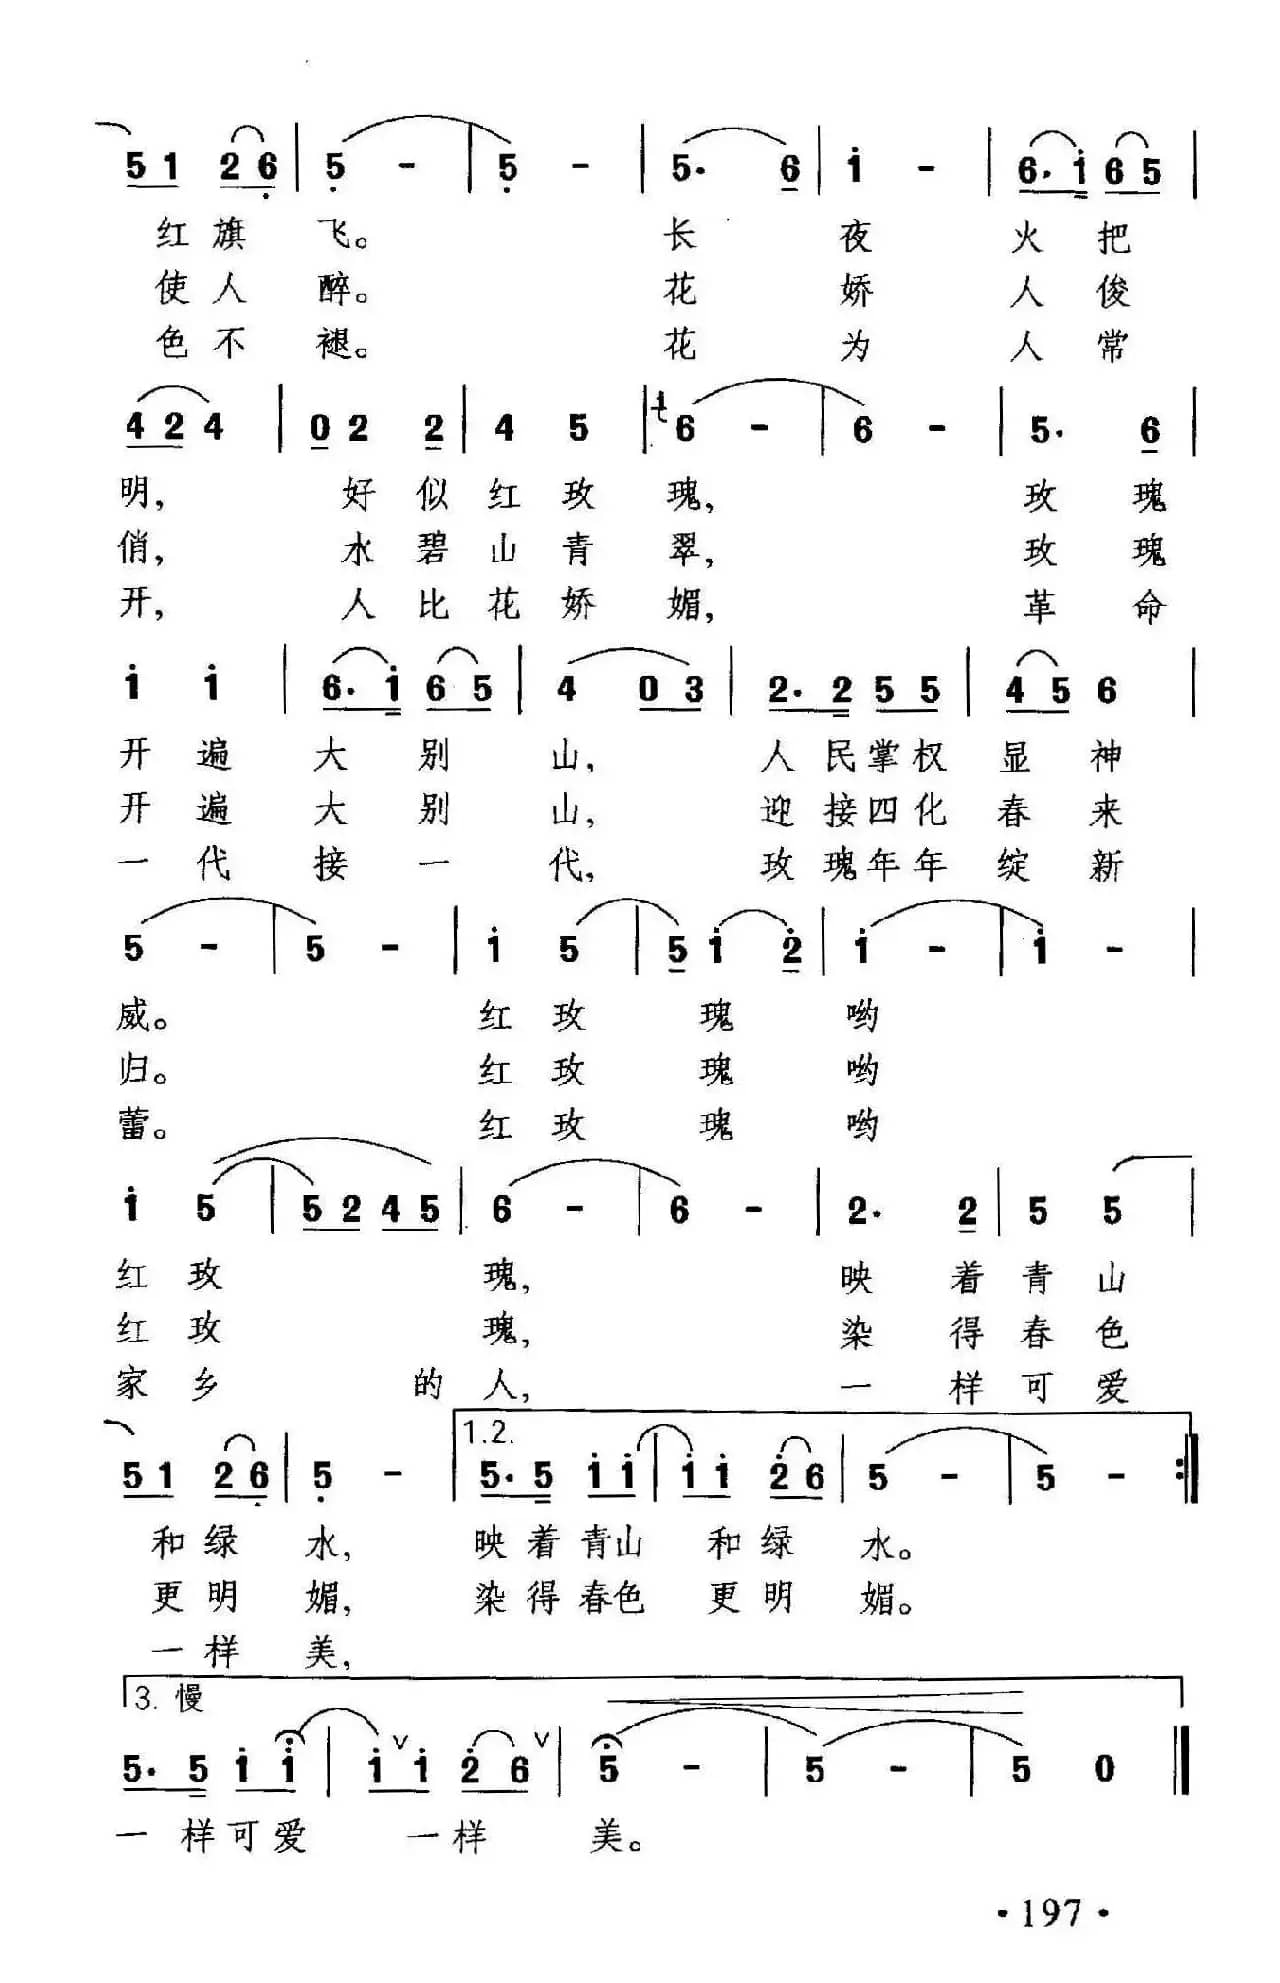 5 1 2 6 | 5 - | 5 - | 5. 6 | 1 - | 6. 1 6 5 |
红 旗 飞。 长 夜 火 把
使 人 醉。 花 娇 人 俊
色 不 褪。 花 为 人 常
4 2 4 | 0 2 2 | 4 5 | 1 6 - | 6 - | 5. 6 |
明, 好 似 红 玫 瑰, 玫 瑰
俏, 水 碧 山 青 翠, 玫 瑰
开, 人 比 花 娇 媚, 革 命
1 1 | 6. 1 6 5 | 4 0 3 | 2. 2 5 5 | 4 5 6 |
开 遍 大 别 山, 人 民 掌 权 显 神
开 遍 大 别 山, 迎 接 四 化 春 来
一 代 接 一 代, 玫 瑰 年 年 绽 新
5 - | 5 - | 1 5 | 5 1 2 | 1 - | 1 - |
威。 红 玫 瑰 哟
归。 红 玫 瑰 哟
蕾。 红 玫 瑰 哟
1 5 | 5 2 4 5 | 6 - | 6 - | 2. 2 | 5 5 |
红 玫 瑰, 映 着 青 山
红 玫 瑰, 染 得 春 色
家 乡 的 人, 一 样 可 爱
1.2.
5 1 2 6 | 5 - | 5. 5 1 1 | 1 1 2 6 | 5 - | 5 - :|
和 绿 水, 映 着 青 山 和 绿 水。
更 明 媚, 染 得 春 色 更 明 媚。
一 样 美,
3. 慢
5. 5 1 1 | 1 1 2 6 | 5 - | 5 - | 5 0 ||
一 样 可 爱 一 样 美。
· 197 ·